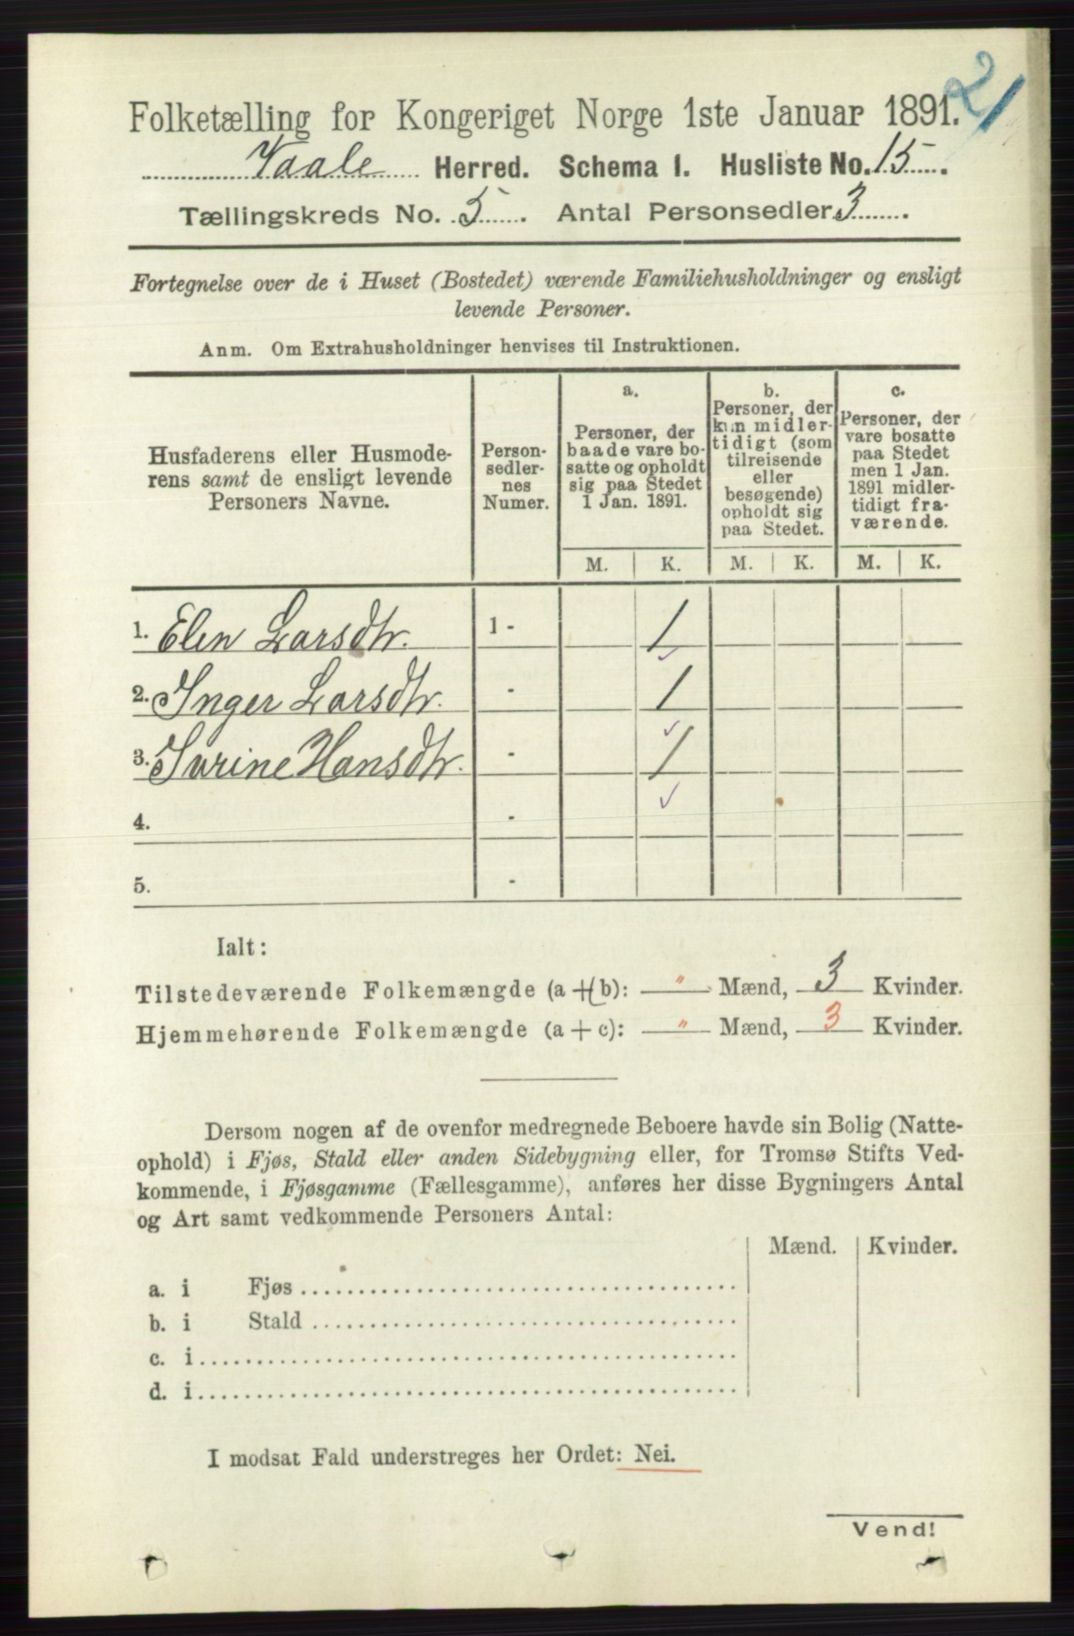 21
Folketælling for Kongeriget Norge 1ste Januar 1891.
Vaale Herred. Schema I. Husliste No. 15.
Tællingskreds No. 5. Antal Personsedler 3.
Fortegnelse over de i Huset (Bostedet) værende Familiehusholdninger og ensligt
levende Personer.
Anm. Om Extrahusholdninger henvises til Instruktionen.
Husfaderens eller Husmode-
rens samt de ensligt levende
Personers Navne.
Person-
sedler-
nes
Numer.
a.
Personer, der
baade vare bo-
satte og opholdt
sig paa Stedet
1 Jan. 1891.
b.
Personer, der
kun midler-
tidigt (som
tilreisende
eller
besøgende)
opholdt sig
paa Stedet.
c.
Personer, der
vare bosatte
paa Stedet
men 1 Jan.
1891 midler-
tidigt fra-
værende.
M. K. M. K. M. K.
1. Elen Larsdtr. 1 - 1
2. Inger Larsdtr. - 1
3. Karine Hansdtr. - 1
4. -
5. -
Ialt:
Tilstedeværende Folkemængde (a + b): " Mænd, 3 Kvinder.
Hjemmehørende Folkemængde (a + c): " Mænd, 3 Kvinder.
Dersom nogen af de ovenfor medregnede Beboere havde sin Bolig (Natte-
ophold) i Fjøs, Stald eller anden Sidebygning eller, for Tromsø Stifts Ved-
kommende, i Fjøsgamme (Fællesgamme), anføres her disse Bygningers Antal
og Art samt vedkommende Personers Antal:
Mænd. Kvinder.
a. i Fjøs
b. i Stald
c. i
d. i
I modsat Fald understreges her Ordet: Nei.
Vend!